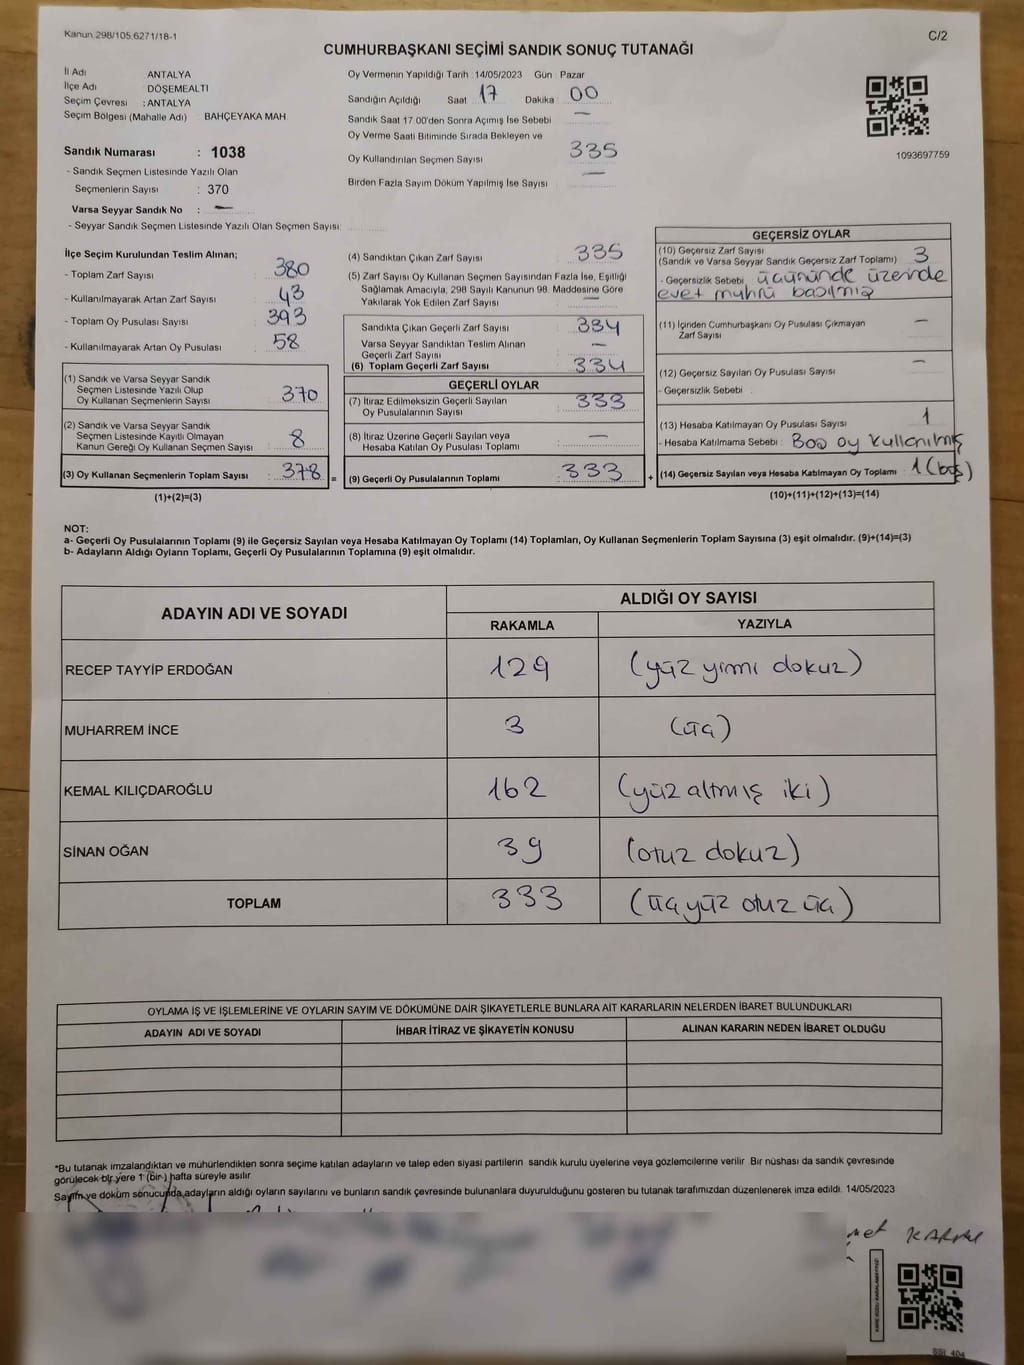 Kanun 298/105.6271/18-1
C/2
CUMHURBAŞKANI SEÇİMİ SANDIK SONUÇ TUTANAĞI
İl Adı ANTALYA
İlçe Adı DÖŞEMEALTI
Seçim Çevresi : ANTALYA
Seçim Bölgesi (Mahalle Adı) BAHÇEYAKA MAH
Sandık Numarası : 1038
- Sandık Seçmen Listesinde Yazılı Olan
Seçmenlerin Sayısı : 370
Varsa Seyyar Sandık No : —
- Seyyar Sandık Seçmen Listesinde Yazılı Olan Seçmen Sayısı
Oy Vermenin Yapıldığı Tarih 14/05/2023 Gün Pazar
Sandığın Açıldığı Saat 17 Dakika 00
Sandık Saat 17 00'den Sonra Açımış İse Sebebi —
Oy Verme Saati Bitiminde Sırada Bekleyen ve
Oy Kullandırılan Seçmen Sayısı 335
Birden Fazla Sayım Döküm Yapılmış İse Sayısı —
1093697759
İlçe Seçim Kurulundan Teslim Alınan;
- Toplam Zarf Sayısı 380
- Kullanılmayarak Artan Zarf Sayısı 43
- Toplam Oy Pusulası Sayısı 393
- Kullanılmayarak Artan Oy Pusulası 58
(1) Sandık ve Varsa Seyyar Sandık
Seçmen Listesinde Yazılı Olup
Oy Kullanan Seçmenlerin Sayısı 370
(2) Sandık ve Varsa Seyyar Sandık
Seçmen Listesinde Kayıtlı Olmayan
Kanun Gereği Oy Kullanan Seçmen Sayısı 8
(3) Oy Kullanan Seçmenlerin Toplam Sayısı 378 =
(1)+(2)=(3)
(4) Sandıktan Çıkan Zarf Sayısı 335
(5) Zarf Sayısı Oy Kullanan Seçmen Sayısından Fazla İse, Eşitliği
Sağlamak Amacıyla, 298 Sayılı Kanunun 98. Maddesine Göre
Yakılarak Yok Edilen Zarf Sayısı —
Sandıkta Çıkan Geçerli Zarf Sayısı 334
Varsa Seyyar Sandıktan Teslim Alınan
Geçerli Zarf Sayısı —
(6) Toplam Geçerli Zarf Sayısı 334
GEÇERLİ OYLAR
(7) İtiraz Edilmeksizin Geçerli Sayılan
Oy Pusulalarının Sayısı 333
(8) İtiraz Üzerine Geçerli Sayılan veya
Hesaba Katılan Oy Pusulası Toplamı —
(9) Geçerli Oy Pusulalarının Toplamı 333 +
GEÇERSİZ OYLAR
(10) Geçersiz Zarf Sayısı
(Sandık ve Varsa Seyyar Sandık Geçersiz Zarf Toplamı) 3
- Geçersizlik Sebebi üçününde üzerinde
evet mührü basılmış
(11) İçinden Cumhurbaşkanı Oy Pusulası Çıkmayan
Zarf Sayısı —
(12) Geçersiz Sayılan Oy Pusulası Sayısı —
- Geçersizlik Sebebi
(13) Hesaba Katılmayan Oy Pusulası Sayısı 1
- Hesaba Katılmama Sebebi : Boş oy kullanılmış
(14) Geçersiz Sayılan veya Hesaba Katılmayan Oy Toplamı : 1 (boş)
(10)+(11)+(12)+(13)=(14)
NOT:
a- Geçerli Oy Pusulalarının Toplamı (9) ile Geçersiz Sayılan veya Hesaba Katılmayan Oy Toplamı (14) Toplamları, Oy Kullanan Seçmenlerin Toplam Sayısına (3) eşit olmalıdır. (9)+(14)=(3)
b- Adayların Aldığı Oyların Toplamı, Geçerli Oy Pusulalarının Toplamına (9) eşit olmalıdır.
ADAYIN ADI VE SOYADI
ALDIĞI OY SAYISI
RAKAMLA YAZIYLA
RECEP TAYYİP ERDOĞAN 129 (yüz yirmi dokuz)
MUHARREM İNCE 3 (üç)
KEMAL KILIÇDAROĞLU 162 (yüz altmış iki)
SİNAN OĞAN 39 (otuz dokuz)
TOPLAM 333 (üçyüz otuz üç)
OYLAMA İŞ VE İŞLEMLERİNE VE OYLARIN SAYIM VE DÖKÜMÜNE DAİR ŞİKAYETLERLE BUNLARA AİT KARARLARIN NELERDEN İBARET BULUNDUKLARI
ADAYIN ADI VE SOYADI İHBAR İTİRAZ VE ŞİKAYETİN KONUSU ALINAN KARARIN NEDEN İBARET OLDUĞU
*Bu tutanak imzalandıktan ve mühürlendikten sonra seçime katılan adayların ve talep eden siyasi partilerin sandık kurulu üyelerine veya gözlemcilerine verilir Bir nüshası da sandık çevresinde
görülecek bir yere 1 (bir ) hafta süreyle asılır
Sayım ve döküm sonucunda adayların aldığı oyların sayılarını ve bunların sandık çevresinde bulunanlara duyurulduğunu gösteren bu tutanak tarafımızdan düzenlenerek imza edildi. 14/05/2023